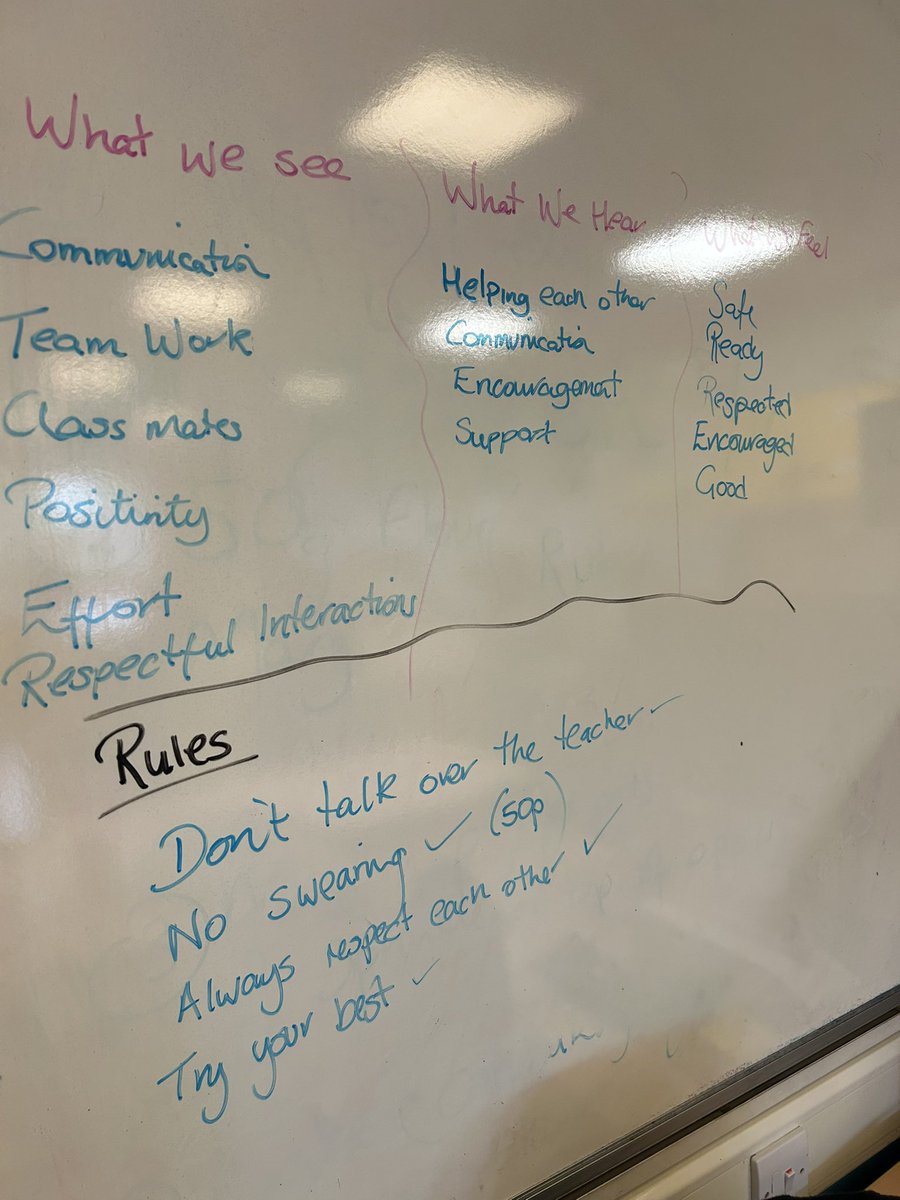 What we see
Communication
Team Work
Class mates
Positivity
Effort
Respectful Interactions
What We Hear
Helping each other
Communication
Encouragement
Support
What We Feel
Safe
Ready
Respected
Encouraged
Good
Rules
Don't talk over the teacher ✓
No swearing ✓ (50p)
Always respect each other ✓
Try your best ✓